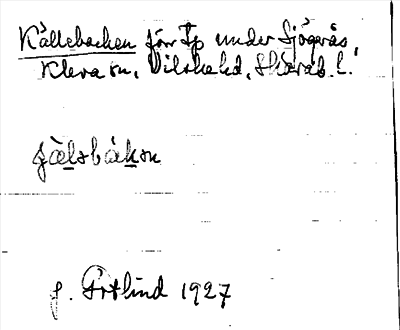 Källebacken förr Tp under Sjögräs,
Kleva sn, Vilske hd, Skarab. l.
jä̀lsbàkən
f. Götlind 1927